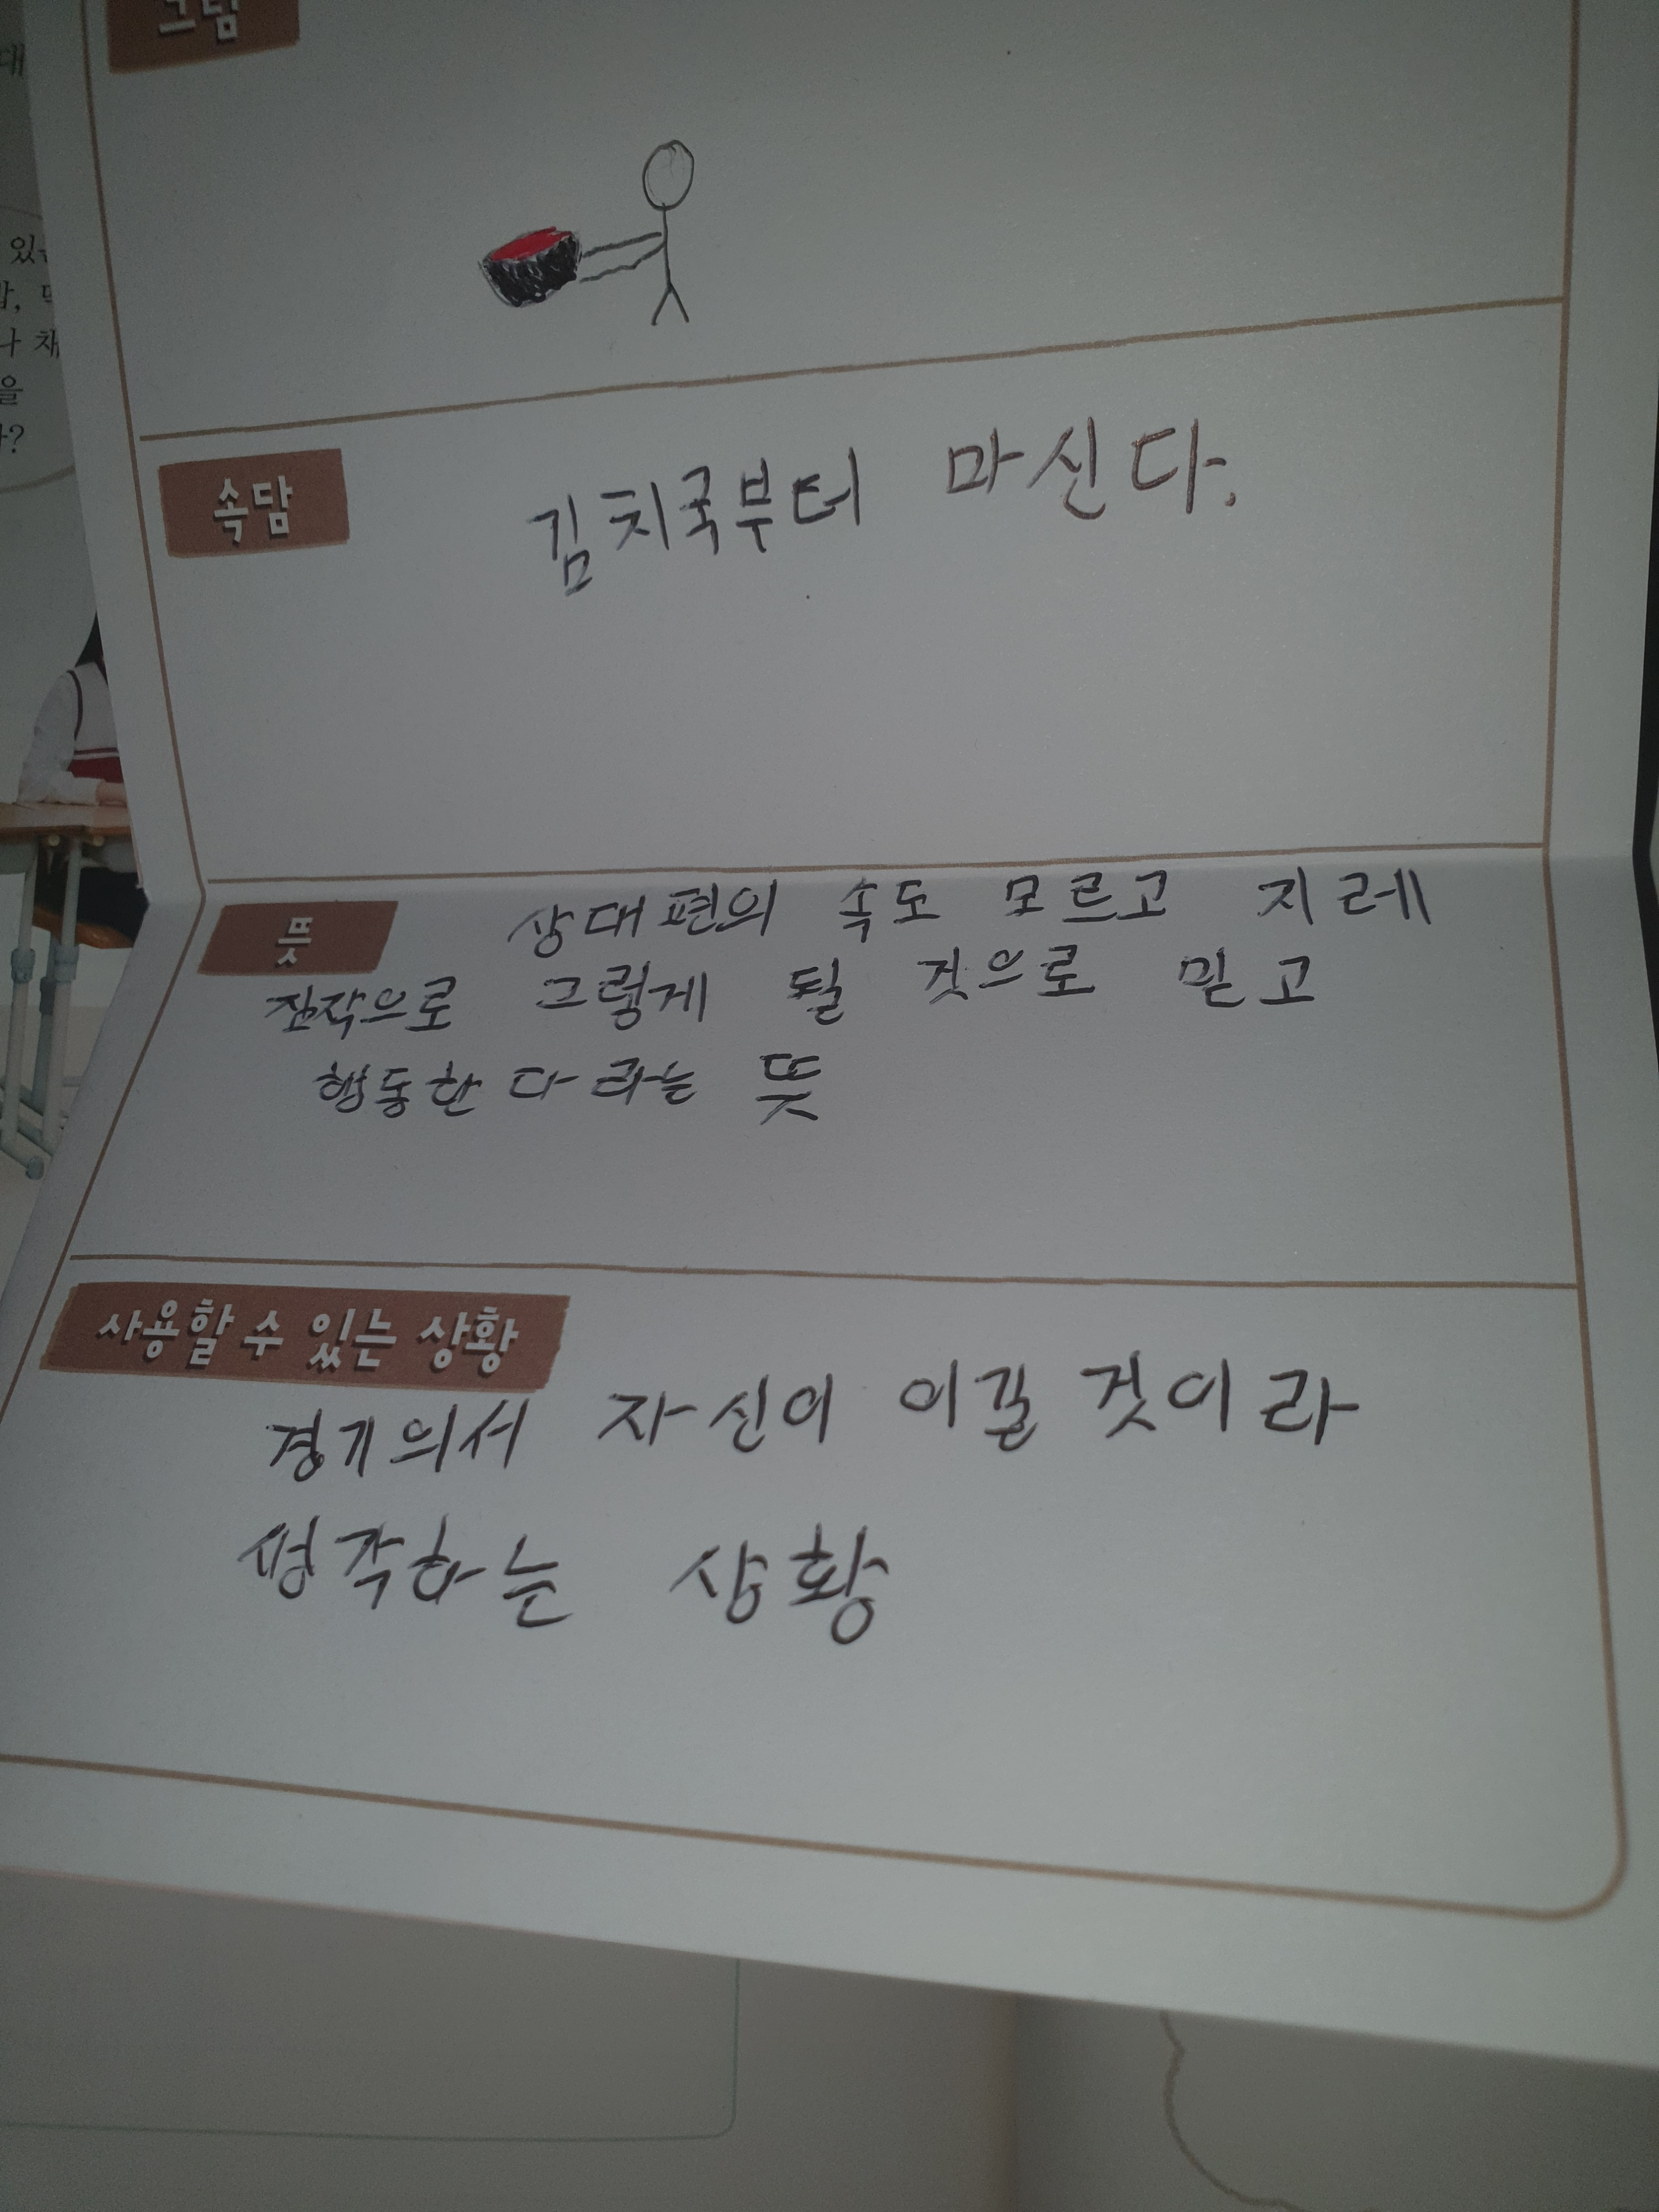 대
있는
나 채
을
?
그림
속담
김치국부터 마신다.
뜻
상대편의 속도 모르고 지레
짐작으로 그렇게 될 것으로 믿고
행동한다라는 뜻
사용할 수 있는 상황
경기의서 자신이 이길 것이라
생각하는 상황